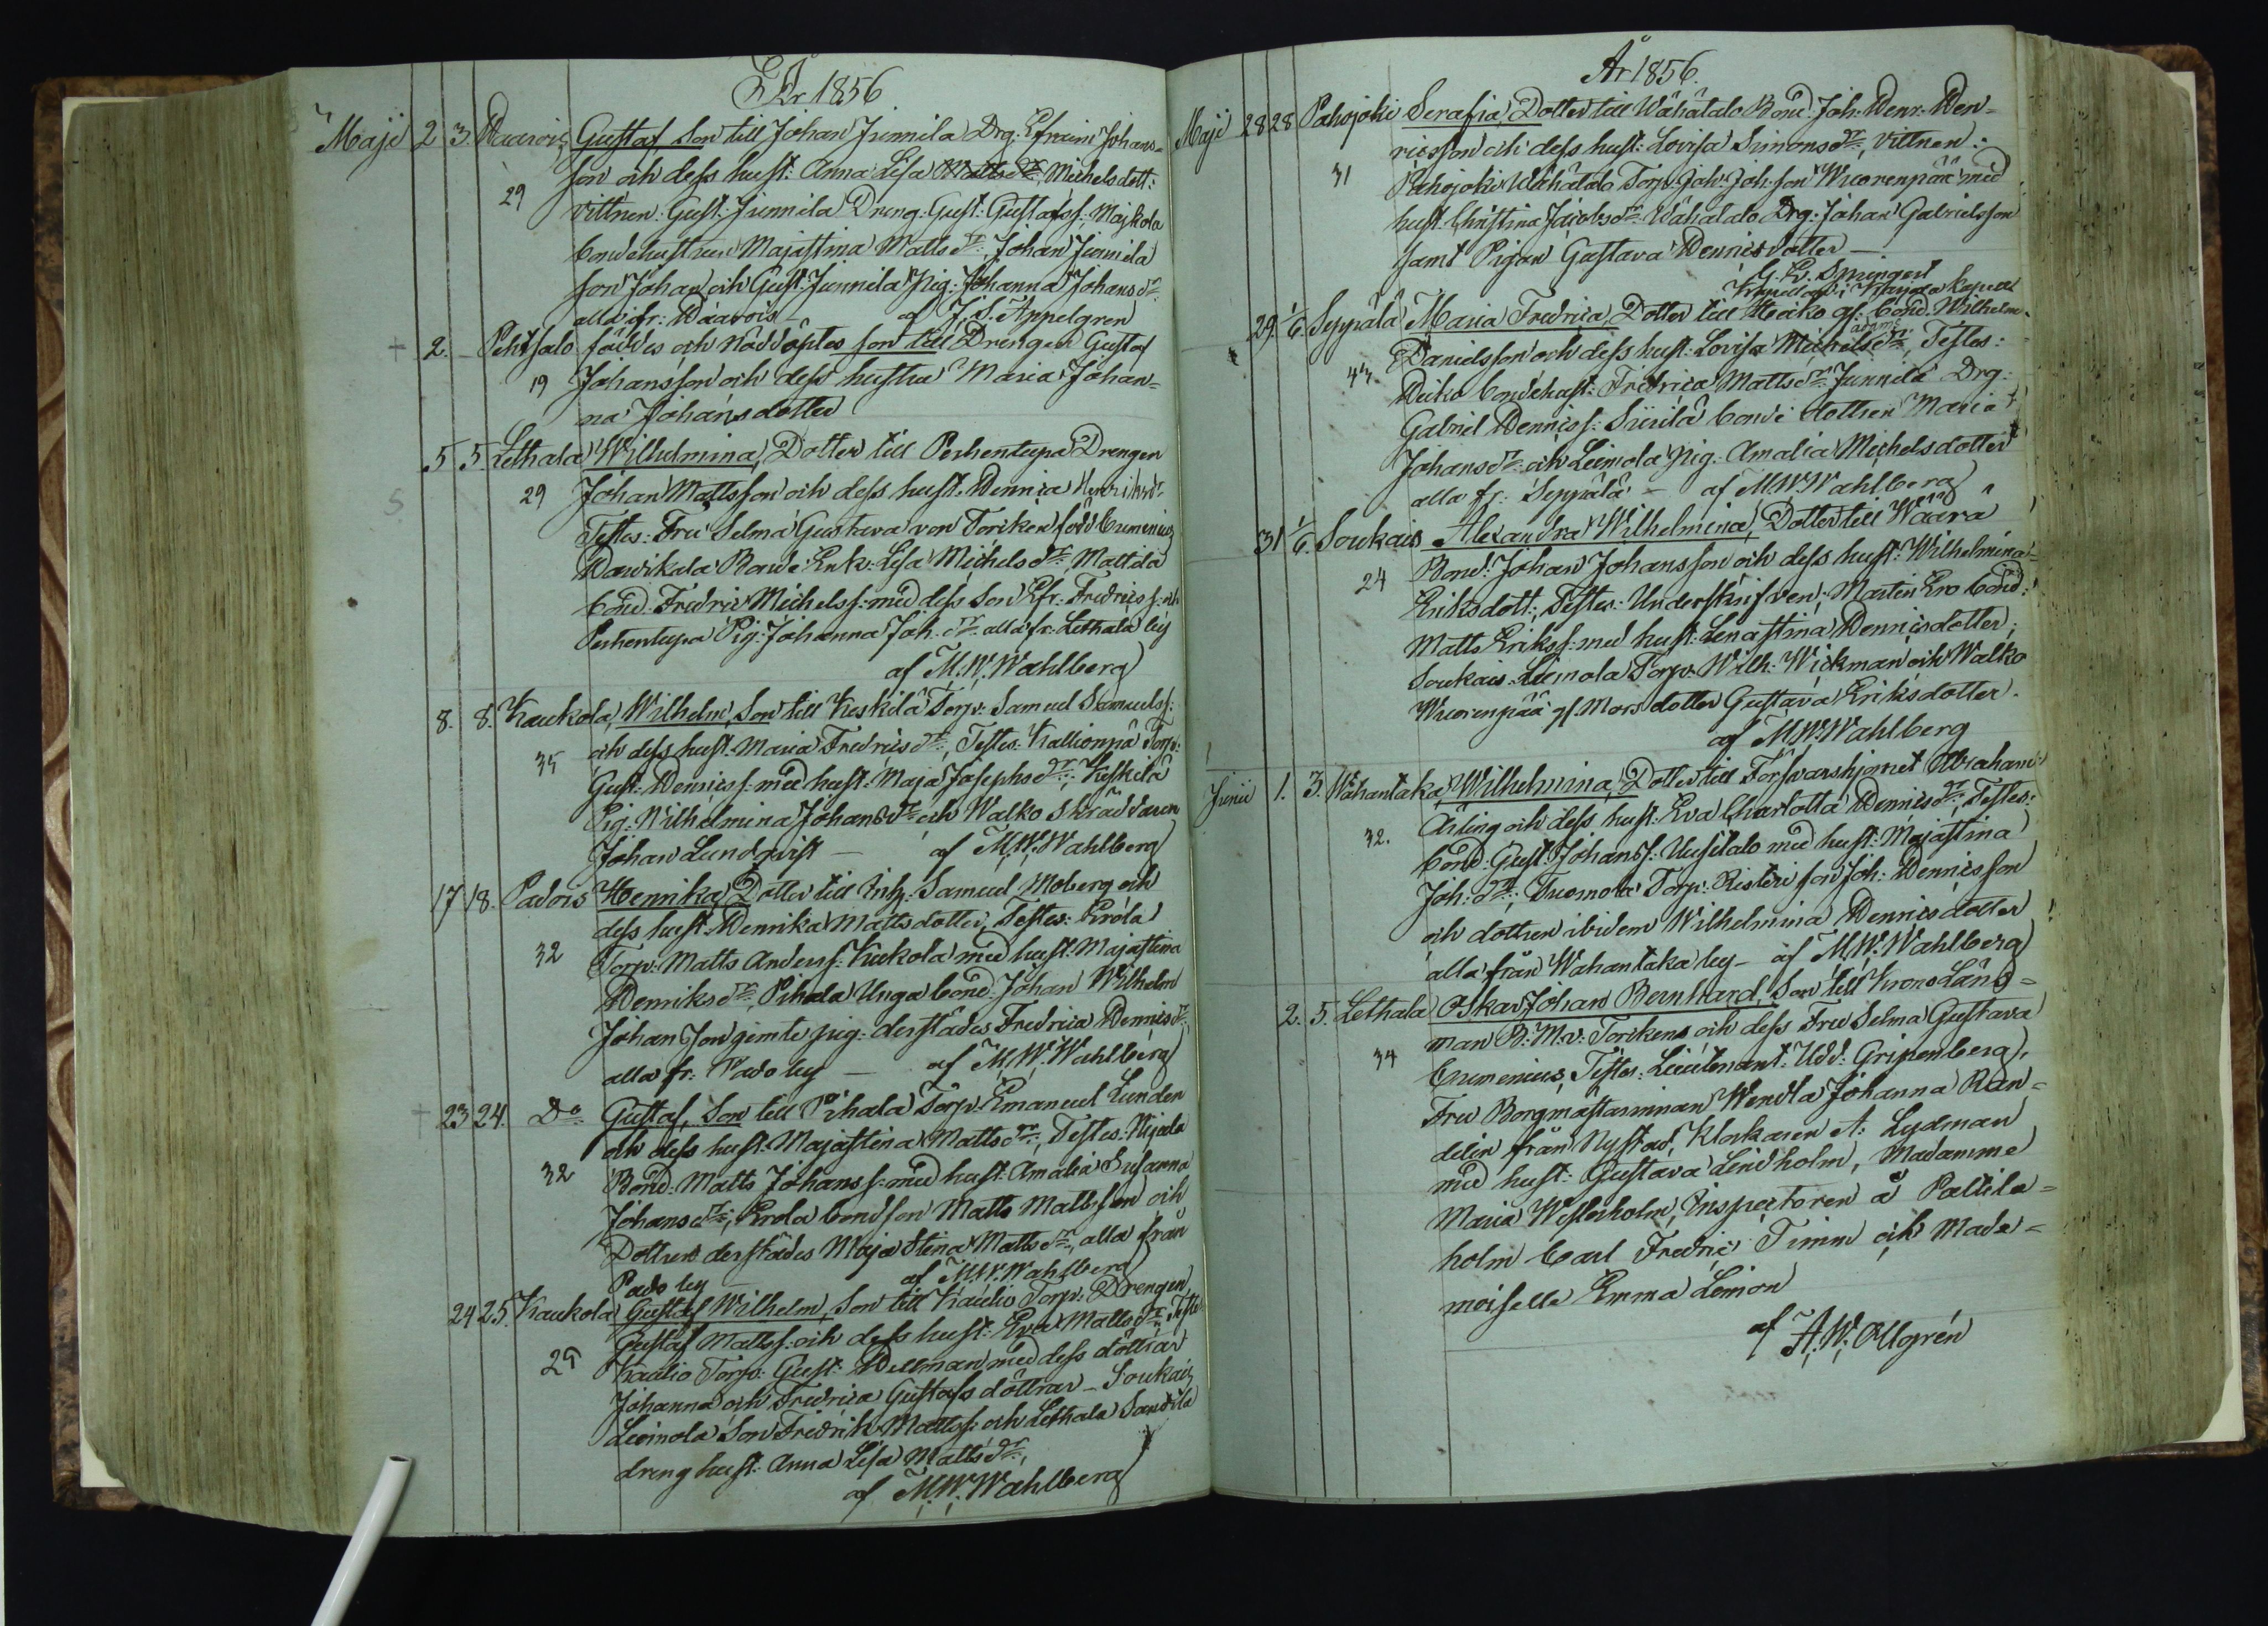 År 1856
Maji 2 3. Gustaf son till Johan Junnila Drg: Efraim Johans=
son och dess hust: Anna Lisa Mattsdr Michelsdott:
29 Vittnen: Gust: Junnila Dreng: Gust: Gustafss: Majskola
bondehustrun Majastina Mattsdr: Johan Junnila
son Johan och Gust: Junnila pig: Johanna Johansdr
alla fr: af J. S. Appelgren
+ 2. Pehtsalo föddes och nöddöptes son till Drengen Gustaf
19 Johansson och dess hustru Maria Johan=
na Johansdotter
5 5 Lethala Wilhelmina, Dotter till Perhentupa Drengen
29 Johan Mattsson och dess hust: Hennica Henriksdr
Testes: Fru Selma Gustava von Torcken född Cumenius
Bonde Enk: Lisa Michelsdr: Mattila
bond: Fredric Michelss: med dess son Efr: Fredricss: och
Perhentupa Pig: Johanna Joh: dr alla fr: Lethala by
af M. W. Wahlberg
8. 8. Kaukola, Wilhelm, Son till Keskilä Torp: Samuel Samuelss:
35 och dess hust: Maria Fredricsdr, Testes: Kallionpä Torp:
Gust: Henricss: med hust: Maja Josephsdr; Keskilä
Pig: Wilhelmina Johansdr och Walko Skräddaren
Johan Lundqvist — af M. W. Wahlberg
17 18. Padois Henrika, Dotter till Inh: Samuel Moberg och
dess hust: Henrika Mattsdotter, Testes: Erola
32 Torp: Matts Anderss: Kukola med hust: Majastina
Henriksdr, Pihala Unga bond: Johan Wilhelm
Johansson jemte pig: derstädes Fredrica Henricsdr
alla fr: Pado by — af M. W. Wahlberg
+ 23 24. Do Gustaf, Son till Pihala Torp: Emanuel Lunden
och dess hust: Majastina Mattsdr, Testes: Nijala
32 Bond: Matts Johanss: med hust: Amalia Susanna
Johansdr; Erola bondson Matts Mattsson och
Dottren derstädes Maja Stina Mattsdr, alla från
Pado by af M. W. Wahlberg
24 25. Kaukola Gustaf Wilhelm, Son till Kaulio Torp: Drengen
Gustaf Mattss: och dess hust: Eva Mattsdr, Teste
25 Kaulio Torp: Gust: Hellman med dess döttrar
Johanna och Fredrica Gustafs döttrar — Soukais
Liemola Son Fredrik Mattss: och Lethala Santila
dreng hust: Anna Lisa Mattsdr,
af M. W. Wahlberg
År 1856.
Maji 28 28 Pahojoki Serafia, Dotter till Wähätalo Bond: Joh: Henr: Hen=
ricsson och dess hust: Lovisa Simonsdr, Vittnen:
31 Pahojoki Wähätalo Torp: Joh: Joh: son Wuorenpää med
hust: Christina Jacobsdr Wähätalo Drg: Johan Gabrielsson
samt Pigan Gustava Henricsdotter —
G. E. Springert
29. 1/6. Seppälä Maria Fredrica, Dotter till Heiko gl: bond: Wilhelm
44 Danielsson och dess hust: Lovisa Michelsdr Adams, Testes:
Heiko bondehust: Fredrica Mattsdr Junnila Drg:
Gabriel Henricss: Siurila bonde dottren Maria
Johansdr och Liemola pig: Amalia Michelsdotter
alla fr: Seppälä — af M. W. Wahlberg
31 1/6. Soukais Alexandra Wilhelmina, Dotter till Wäära
24 Bond: Johan Johansson och dess hust: Wilhelmina
Eriksdott:; Testes: Underskrifven; Marten Ero bond:
Matts Erikss: med hust: Lenastina Henricsdotter;
Soukais Liemola Torp: Wilh: Wickman och Walko
Wuorenpää gl. Mors dotter Gustava Eriksdotter.
af M. W. Wahlberg
Junii 1. 3. Wahantaka, Wilhelmina, Dotter till Försvarshjonet Abraham
32. Ärling och dess hust: Eva Charlotta Henricsdr, Testes:
bond: Gust: Johanss: Uusitalo med hust: Majastina
Joh: dr; Tuomola Torp: Risteri son Joh: Henricsson
och dottren ibidem Wilhelmina Henricsdotter
alla från Wahantaka by — af M. W. Wahlberg
2. 5. Lethala Oskar Johan Bernhard, Son till Krono Läns=
34 man B: M: v: Torcken och dess Fru Selma Gustava
Cumenius, Testes: Lieutenant: Udd: Gripenberg,
Fru Borgmästarinnan Wendla Johanna Ran=
delin från Nystad, Klockaren A: Lydman
med hust: Gustava Lindholm, Madamme
Maria Westerholm, Inspectoren å Pattila=
holm Carl Fredric Timm och Made=
moiselle Emma Limon
af A. W. Ollgrén